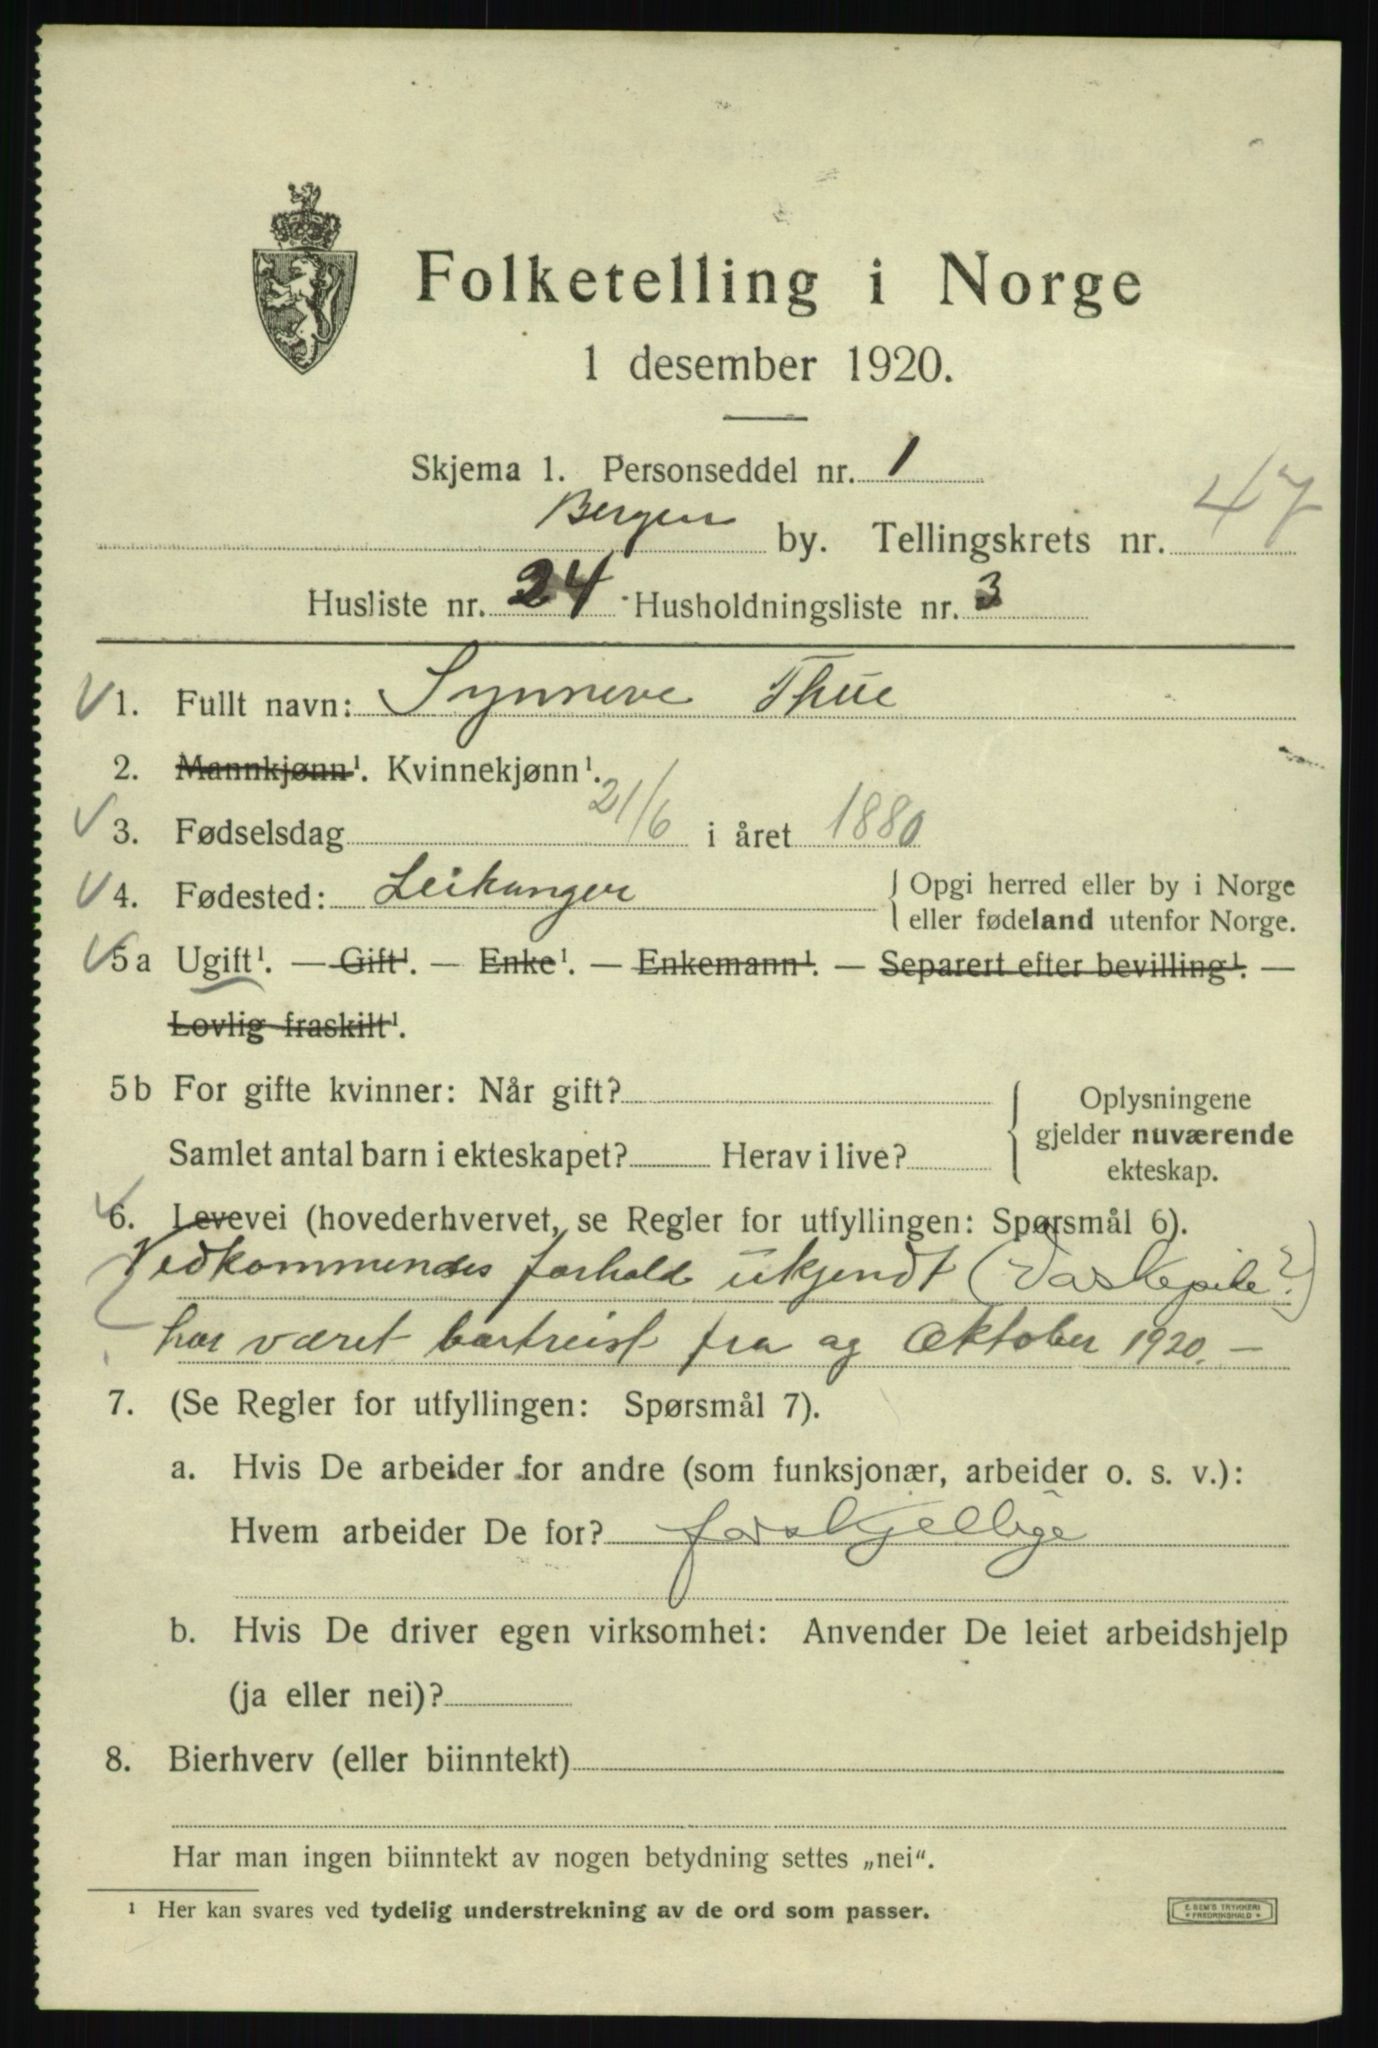 Folketelling i Norge
1 desember 1920.
Skjema 1. Personseddel nr. 1
Bergen by. Tellingskrets nr. 47
Husliste nr. 24 Husholdningsliste nr. 3
1. Fullt navn: Synneve Thue
2. Mannkjønn¹. Kvinnekjønn¹.
3. Fødselsdag 21/6 i året 1880
4. Fødested: Leikanger { Opgi herred eller by i Norge
eller fødeland utenfor Norge.
5a Ugift¹. — Gift¹. — Enke¹. — Enkemann¹. — Separert efter bevilling¹. —
Lovlig fraskilt¹.
5b For gifte kvinner: Når gift? { Oplysningene
gjelder nuværende
Samlet antal barn i ekteskapet? Herav i live? ekteskap.
6. Levevei (hovederhvervet, se Regler for utfyllingen: Spørsmål 6).
Vedkommendes forhold ukjendt (Vaskepike?)
har været bortreist fra og Oktober 1920. —
7. (Se Regler for utfyllingen: Spørsmål 7).
a. Hvis De arbeider for andre (som funksjonær, arbeider o. s. v.):
Hvem arbeider De for? forskjellige
b. Hvis De driver egen virksomhet: Anvender De leiet arbeidshjelp
(ja eller nei)?
8. Bierhverv (eller biinntekt)
Har man ingen biinntekt av nogen betydning settes „nei“.
¹ Her kan svares ved tydelig understrekning av de ord som passer.
E. SEM'S TRYKKERI
* FREDRIKSHALD *